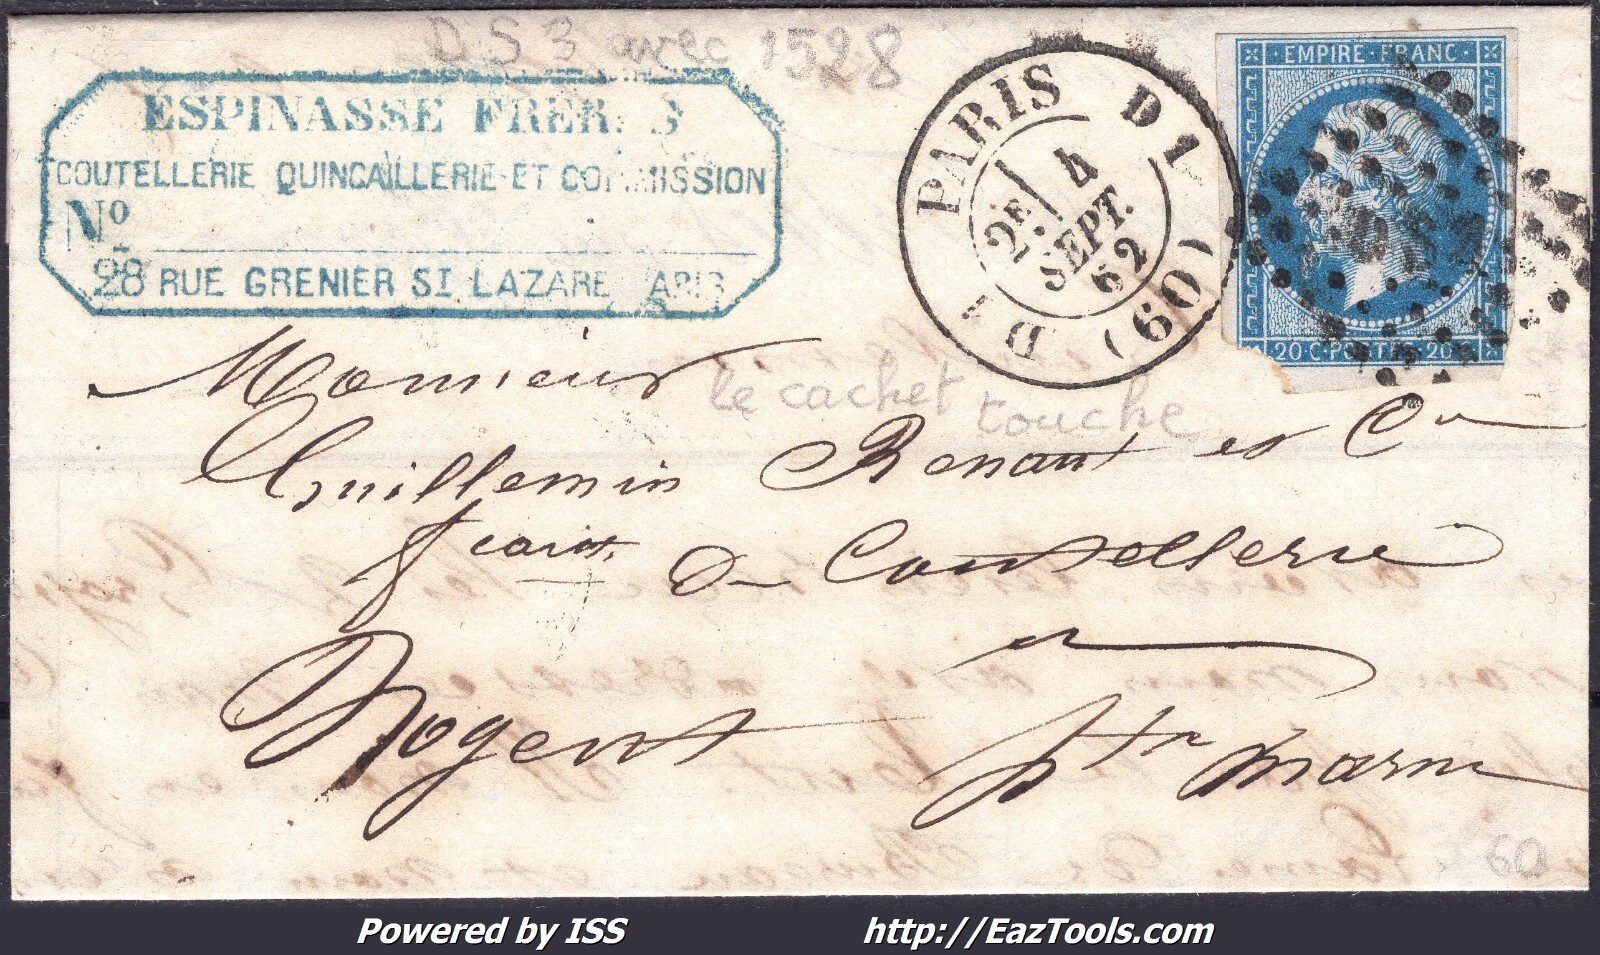 DS3 avec 1528
ESPINASSE FRERES
COUTELLERIE QUINCAILLERIE ET COMMISSION
No
28 RUE GRENIER ST LAZARE PARIS
PARIS D1
2E 4
SEPT.
62
D1 (60)
EMPIRE FRANC
20 C POSTES 20 C
le cachet touche
Monsieur
Guillemin Renaut et Cie
de Coutellerie
Nogent
Hte Marne
60
Powered by ISS
http://EazTools.com